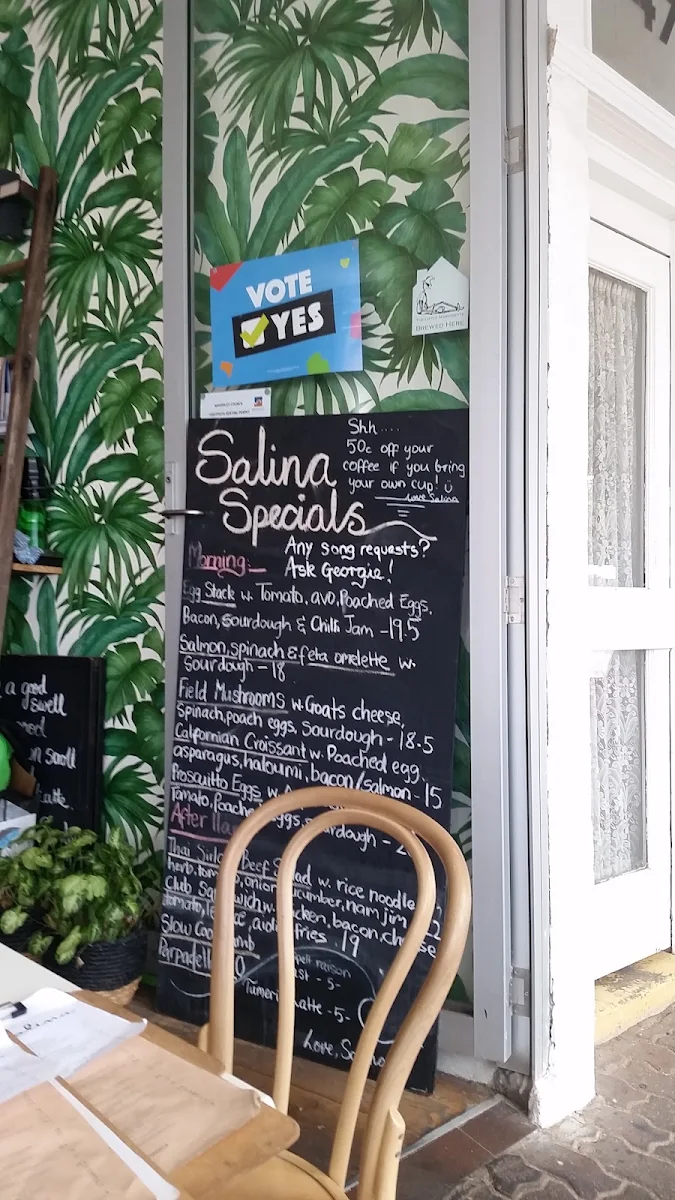 VOTE
YES
BREWED HERE
Salina
Specials
Shh....
50c off your
coffee if you bring
your own cup!
Love Salina
Any song requests?
Ask Georgie!
Morning:
Egg Stack w. Tomato, avo, Poached Eggs,
Bacon, Sourdough & Chilli Jam - 19.5
Salmon, spinach & feta omelette w.
Sourdough - 18
Field Mushrooms w. Goats cheese,
Spinach, poach eggs, Sourdough - 18.5
Californian Croissant w. Poached egg,
asparagus, haloumi, bacon/salmon - 15
Prosquitto Eggs w.
Tomato, Poache eggs, sourdough - 2
After 11a
Thai Sirlo Beef Salad w. rice noodle
herb, tom o, onion cucumber, nam jim 22
Club Sandwich w. chicken, bacon, cheese
tomato, le ce, aioli fries. 19
Slow Coo mb
Parpadell 0
spelt raison
ast - 5-
Tumeri Latte - 5-
Love, Sa
a good
swell
on saoll
Latte.